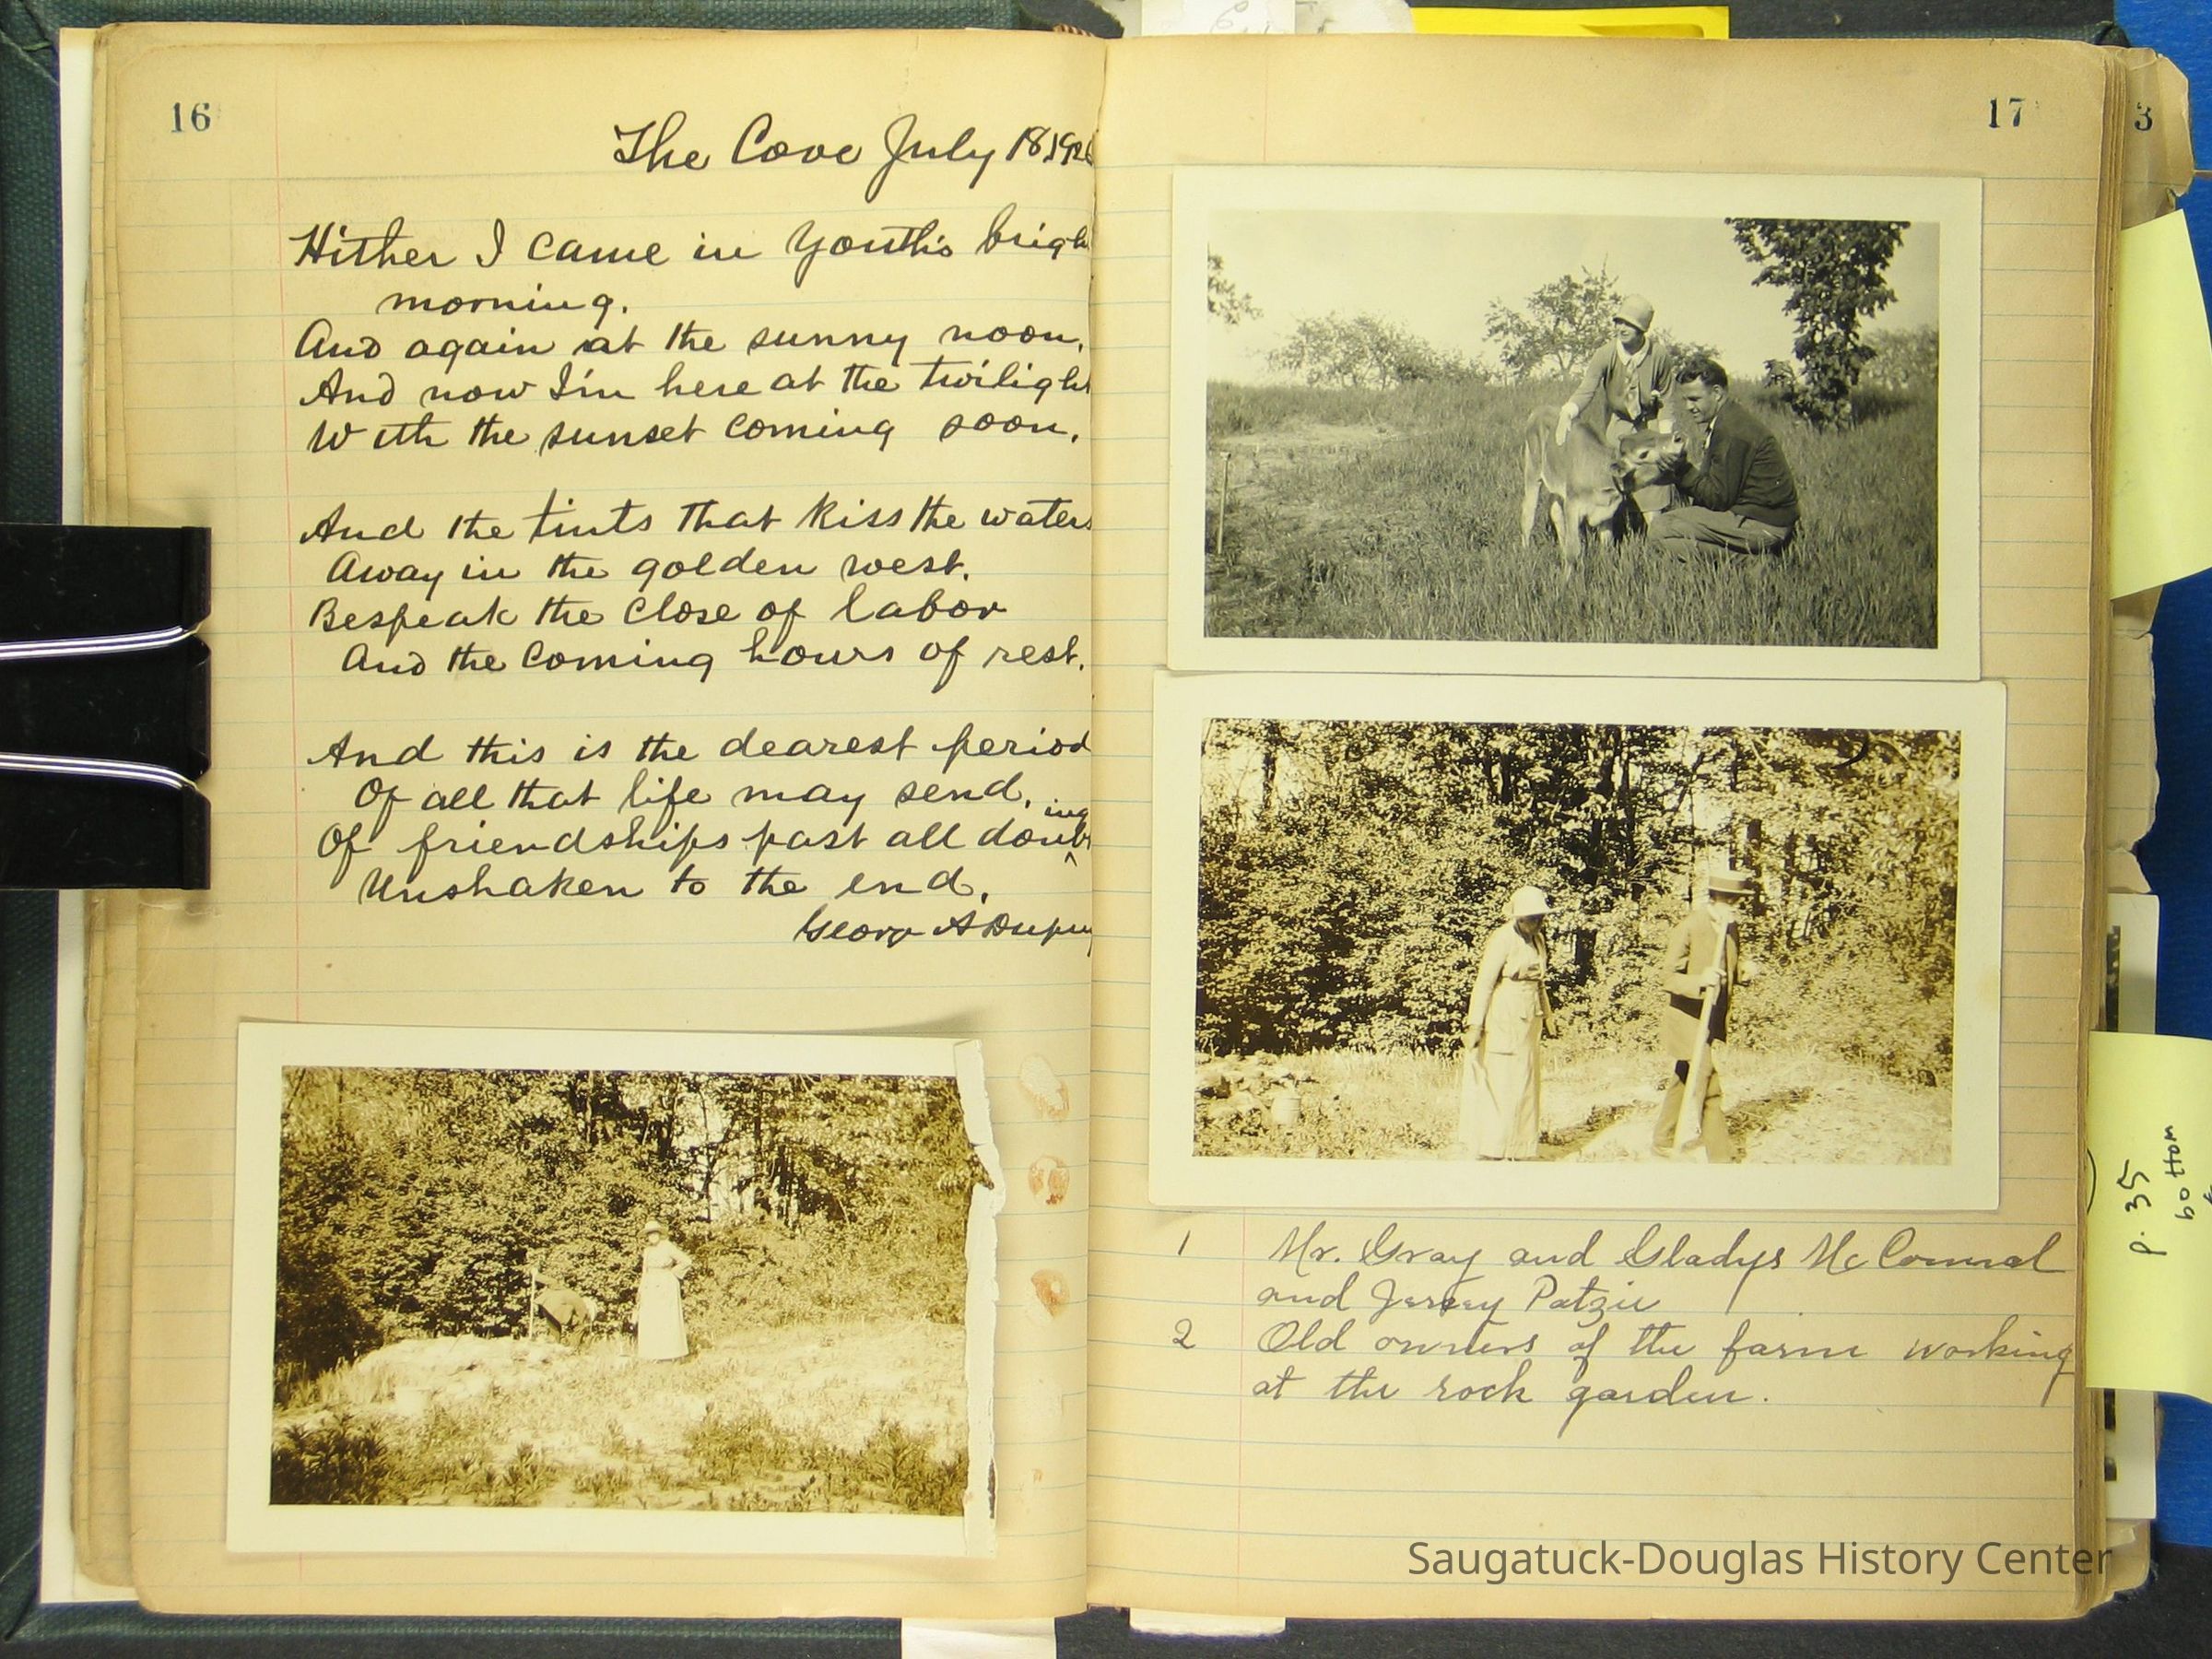 16
The Cove July 18,
Hither I came in Youth's brigh
morning.
And again at the sunny noon,
And now I'm here at the twiligh
With the sunset coming soon.
And the tints that kiss the waters
Away in the golden west.
Bespeak the close of labor
And the coming hours of rest.
And this is the dearest period
Of all that life may send,
ing
Of friendships past all doub
Unshaken to the end.
George A Dupuy
17
3
1 Mr. Gray and Gladys McConnal
and Jersey Patzie
2 Old owners of the farm working
at the rock garden.
p. 35
bottom
Saugatuck-Douglas History Center